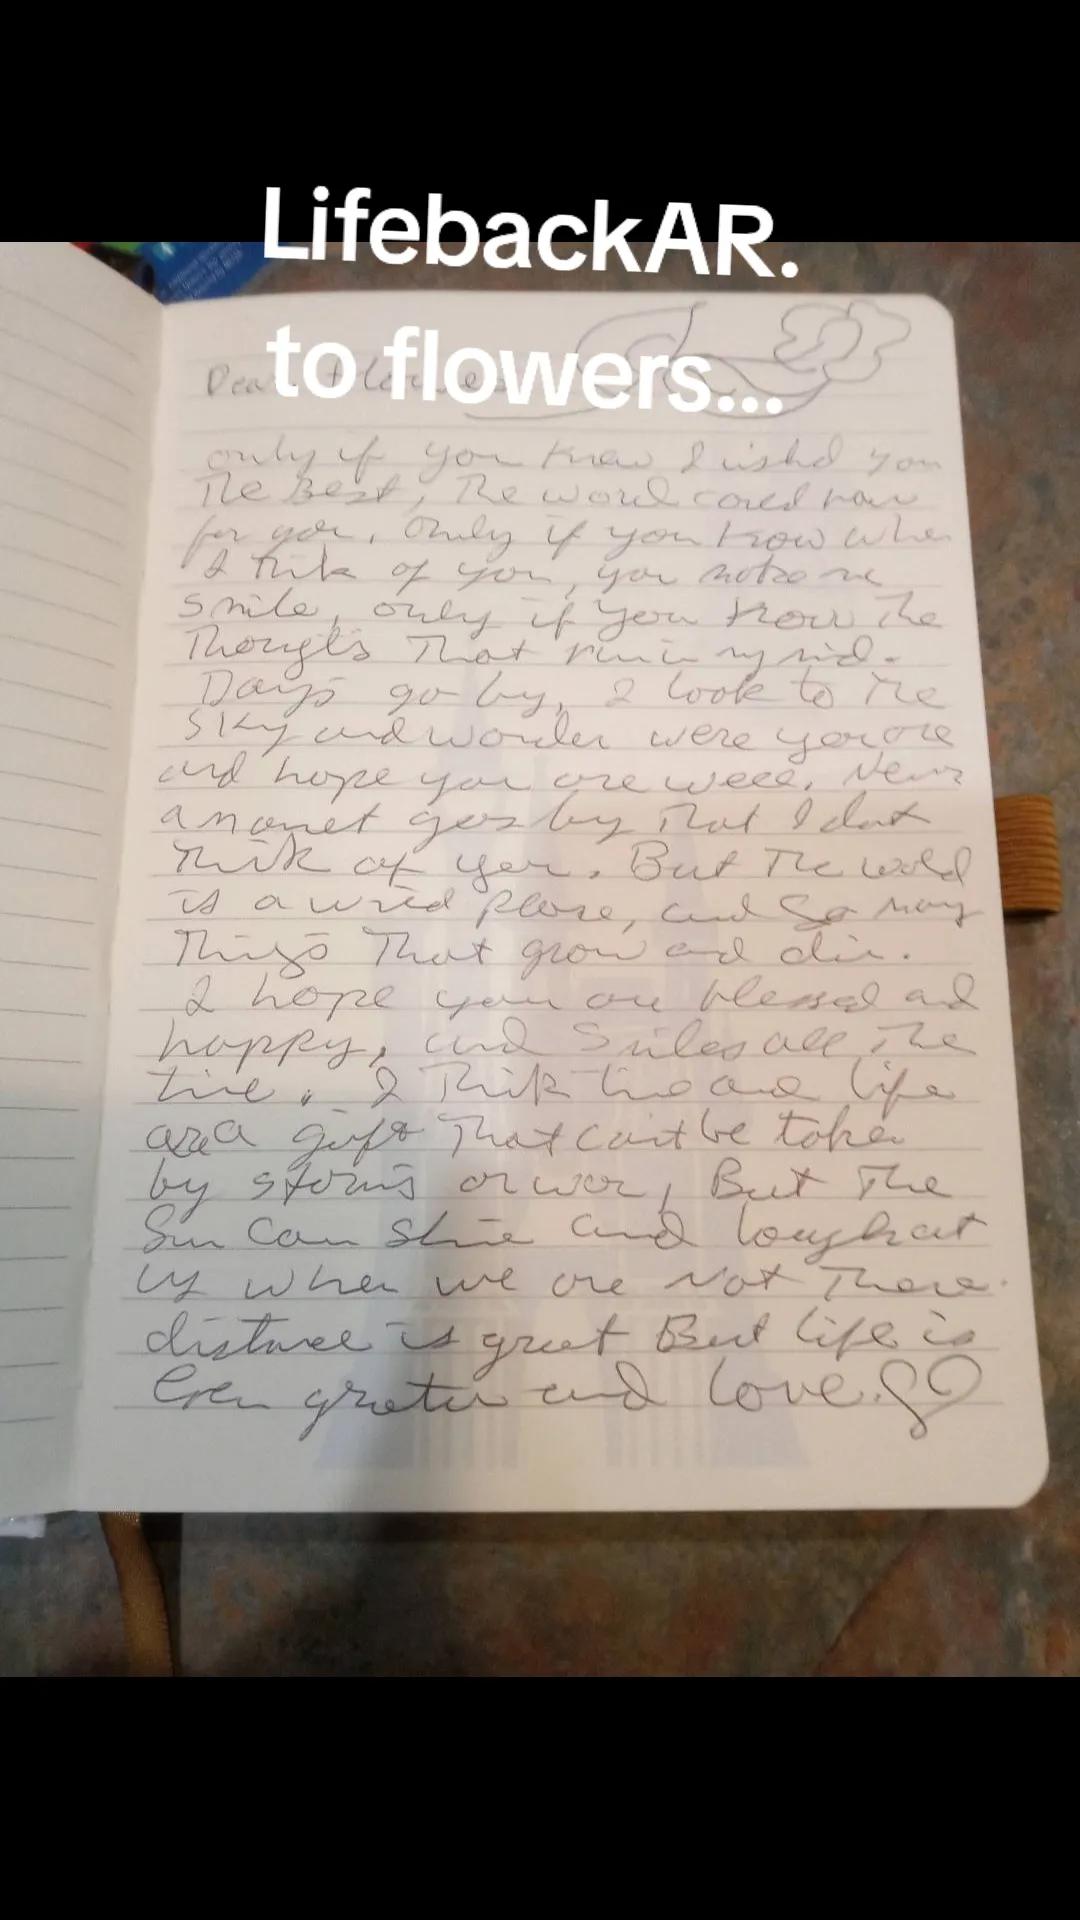 LifebackAR.
to flowers...
Dear
only if you knew I wishd you
The Best, The world cared now
for you, Only if you know when
I think of you, you make me
smile, only if you know The
Thoughts That run in my mid.
Days go by, I look to The
Sky and wonder were you are
and hope you are well. Never
a monet goes by That I dont
Think of you. But The world
is a place, and So many
Things That grow and die.
I hope you are blessed and
happy, and Smiles all The
time. I Think time and life
are a gift That can't be taken
by storms or war, But The
Sun can Shine and laugh at
us when we are Not There.
distance is great But life is
Even greater and love.